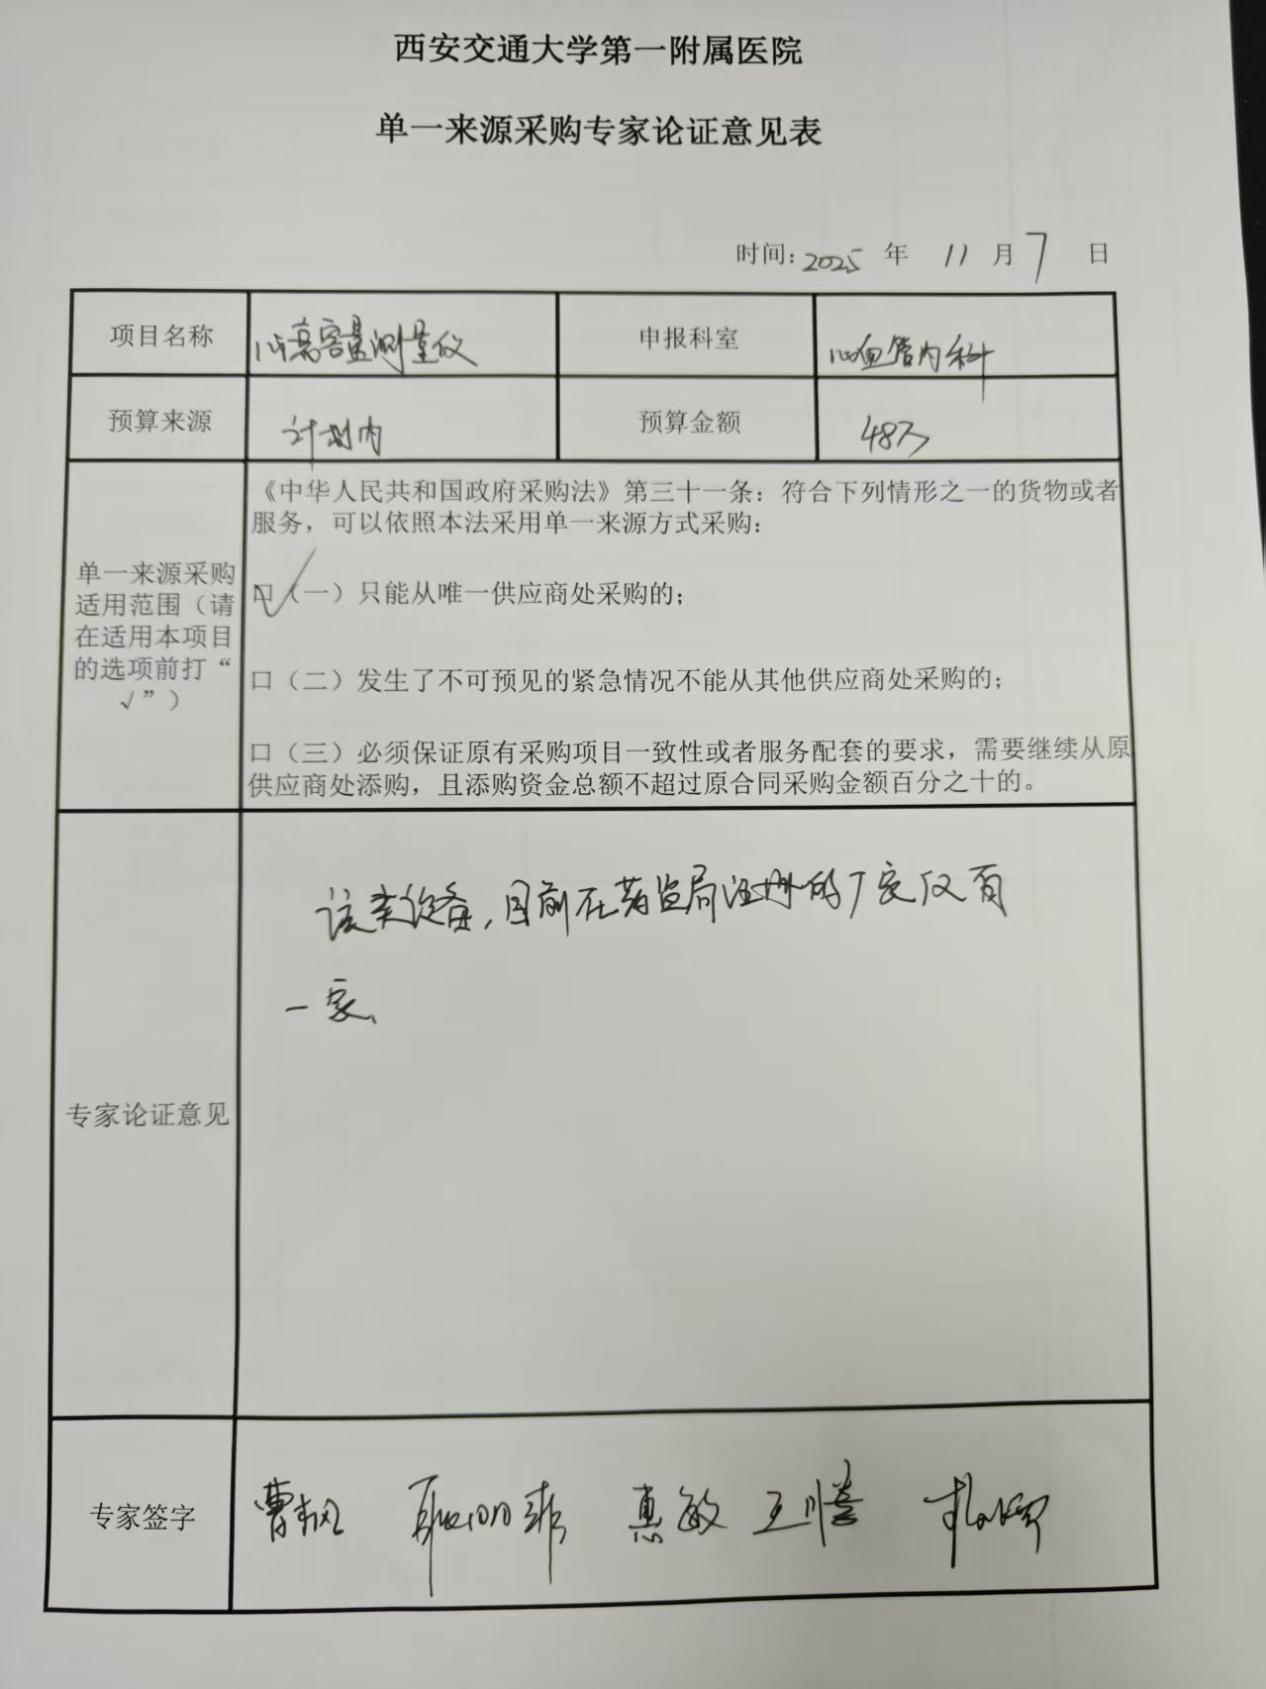 西安交通大学第一附属医院
单一来源采购专家论证意见表
时间：2025 年 11 月 7 日
项目名称 心蒽容量测量仪 申报科室 心血管内科
预算来源 计划内 预算金额 48万
单一来源采购适用范围（请在适用本项目的选项前打“√”）
《中华人民共和国政府采购法》第三十一条：符合下列情形之一的货物或者
服务，可以依照本法采用单一来源方式采购：
☑（一）只能从唯一供应商处采购的；
口（二）发生了不可预见的紧急情况不能从其他供应商处采购的；
口（三）必须保证原有采购项目一致性或者服务配套的要求，需要继续从原
供应商处添购，且添购资金总额不超过原合同采购金额百分之十的。
专家论证意见
该类设备，目前在药监局注册的厂家仅有
一家、
专家签字 曹枫 惠敏